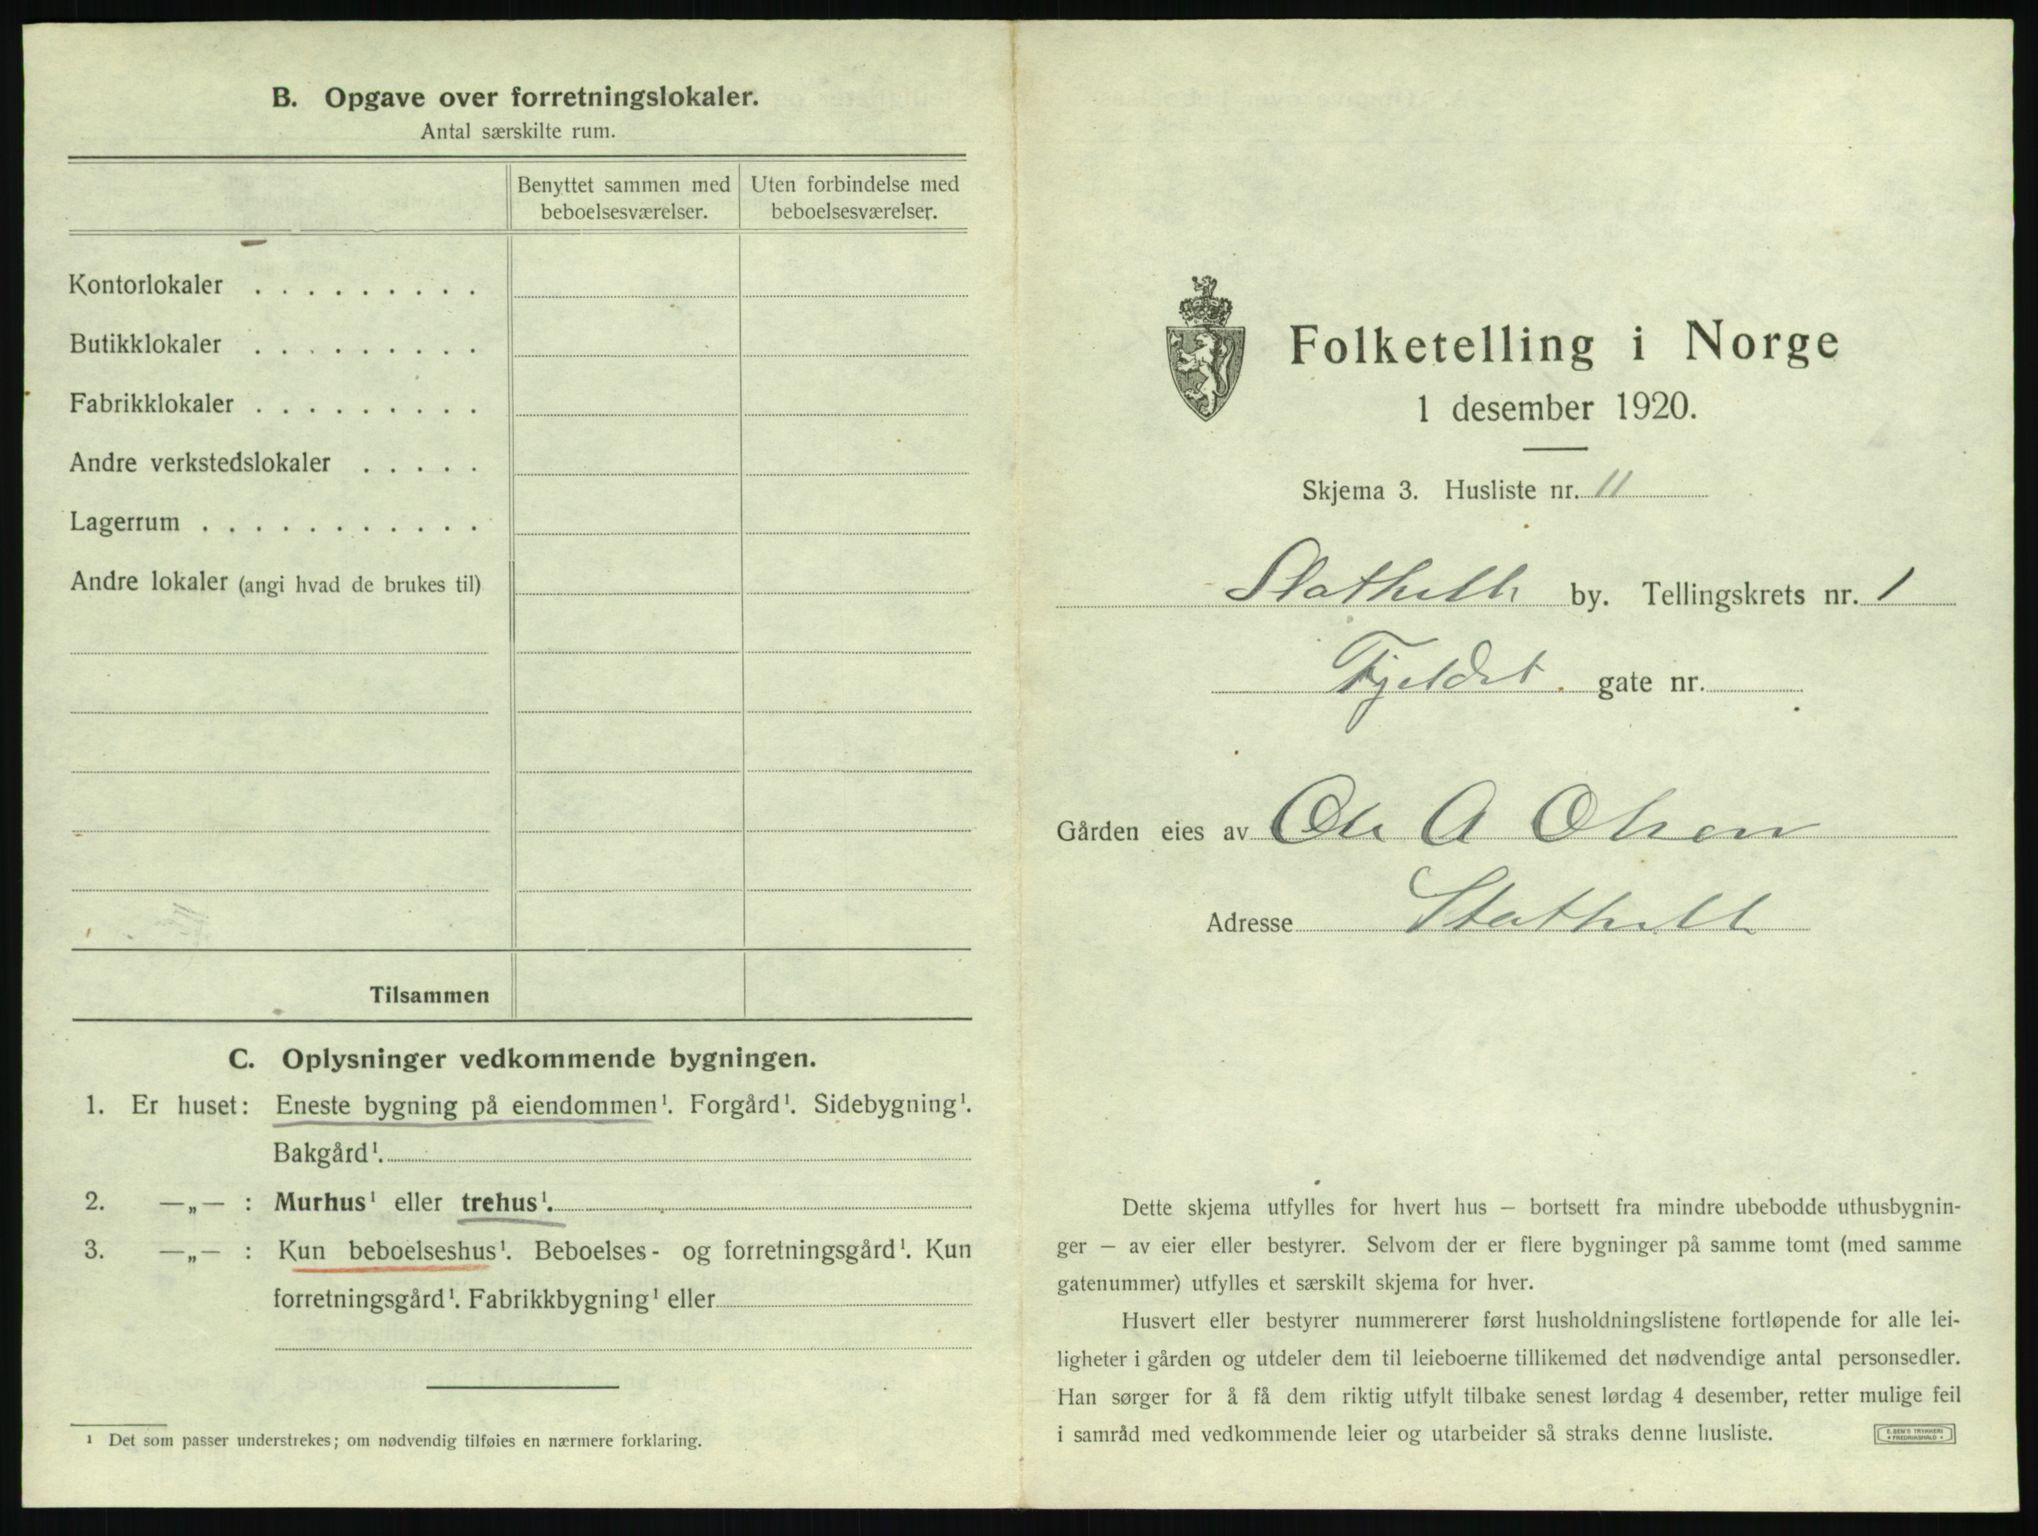 B. Opgave over forretningslokaler.
Antal særskilte rum.
Benyttet sammen med beboelsesværelser.
Uten forbindelse med beboelsesværelser.
Kontorlokaler . . . . . . . . .
Butikklokaler . . . . . . . . .
Fabrikklokaler . . . . . . . . .
Andre verkstedslokaler . . . . .
Lagerrum . . . . . . . . . . .
Andre lokaler (angi hvad de brukes til)
Tilsammen
C. Oplysninger vedkommende bygningen.
1. Er huset: Eneste bygning på eiendommen¹. Forgård¹. Sidebygning¹.
Bakgård¹.
2. —„— : Murhus¹ eller trehus¹.
3. —„— : Kun beboelseshus¹. Beboelses- og forretningsgård¹. Kun
forretningsgård¹. Fabrikkbygning¹ eller
¹ Det som passer understrekes; om nødvendig tilføies en nærmere forklaring.
Folketelling i Norge
1 desember 1920.
Skjema 3. Husliste nr. 11
Stathelle by. Tellingskrets nr. 1
Fjeldet gate nr.
Gården eies av Ole A Olsen
Adresse Stathelle
Dette skjema utfylles for hvert hus – bortsett fra mindre ubebodde uthusbygnin-
ger – av eier eller bestyrer. Selvom der er flere bygninger på samme tomt (med samme
gatenummer) utfylles et særskilt skjema for hver.
Husvert eller bestyrer nummererer først husholdningslistene fortløpende for alle lei-
ligheter i gården og utdeler dem til leieboerne tillikemed det nødvendige antal personsedler.
Han sørger for å få dem riktig utfylt tilbake senest lørdag 4 desember, retter mulige feil
i samråd med vedkommende leier og utarbeider så straks denne husliste.
E. SEM'S TRYKKERI
FREDRIKSHALD